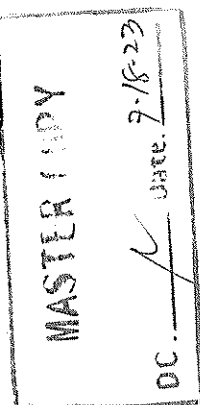 MASTER COPY
DC. Date. 9-18-23